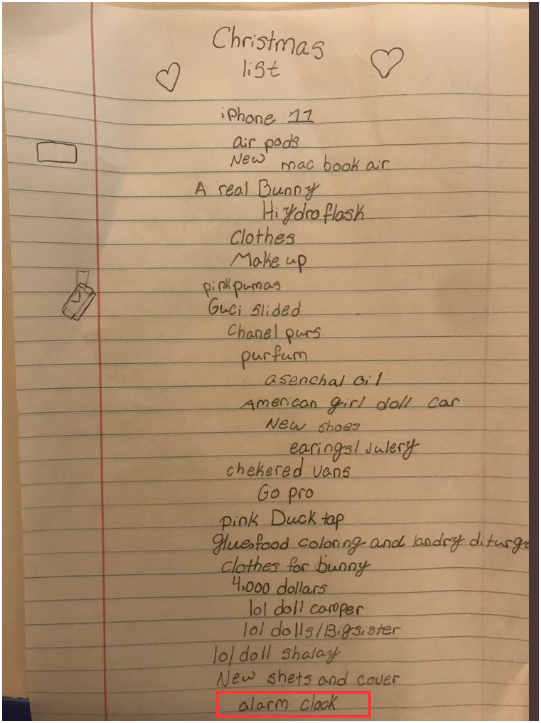 Christmas
list
iPhone 11
air pods
New mac book air
A real Bunny
Hiydroflask
Clothes
Make up
pink pumas
Guci slided
Chanel purs
purfum
asenchal oil
American girl doll car
New shoes
earings/Julery
chekered vans
Go pro
pink Duck tap
gluesfood coloring and landry diturge
Clothes for bunny
4,000 dollars
lol doll camper
lol dolls/Bigsister
lol doll shalay
New shets and cover
alarm clock